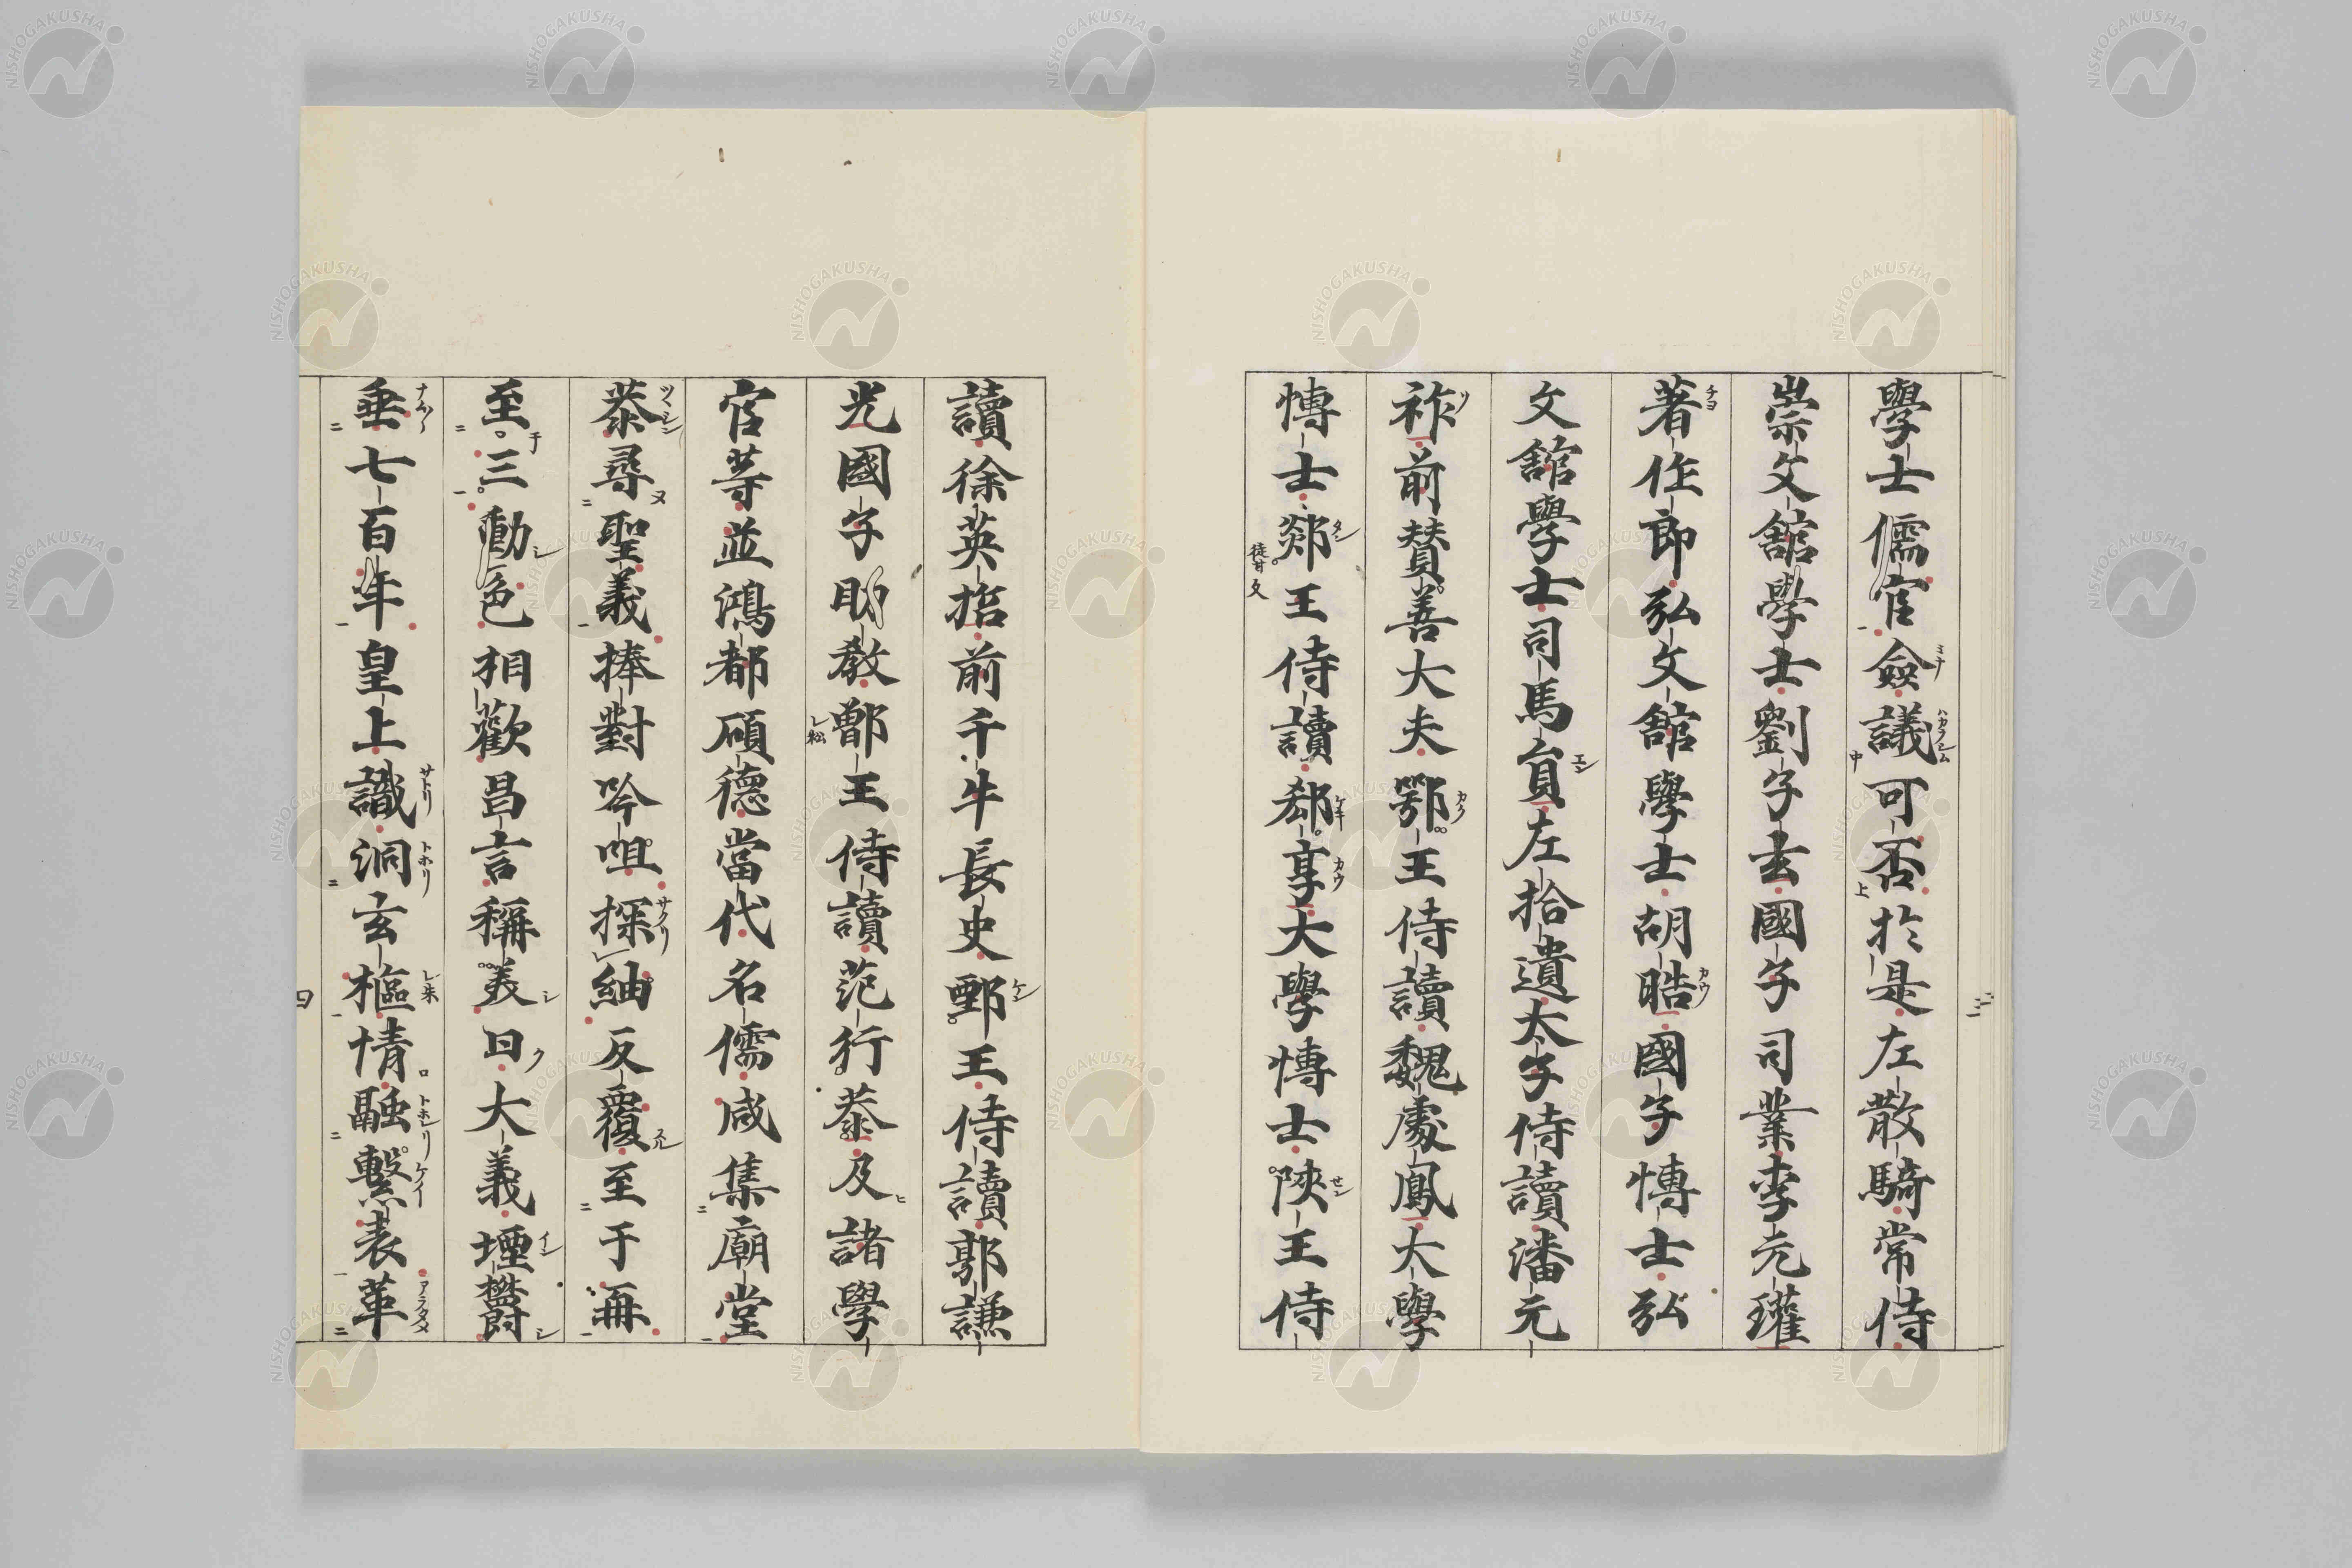 學士儒官僉議可否於是左散騎常侍
崇文舘學士劉子玄國子司業李元瓘
著作郎弘文舘學士胡晧國子博士弘
文舘學士司馬貞左拾遺太子侍讀潘元
祚前賛善大夫鄂王侍讀魏處鳳大學
博士郯王侍讀郄享大學博士陝王侍
讀徐英招前千牛長史鄄王侍讀郭謙
光國子助教鄫王侍讀范行恭及諸學
官等並鴻都碩德當代名儒咸集廟堂
恭尋聖義捧對吟咀探紬反覆至于再
至三動色相歡昌言稱義曰大義堙欝
垂七百年皇上識洞玄樞情融繫表革
三
四
NISHOGAKUSHA